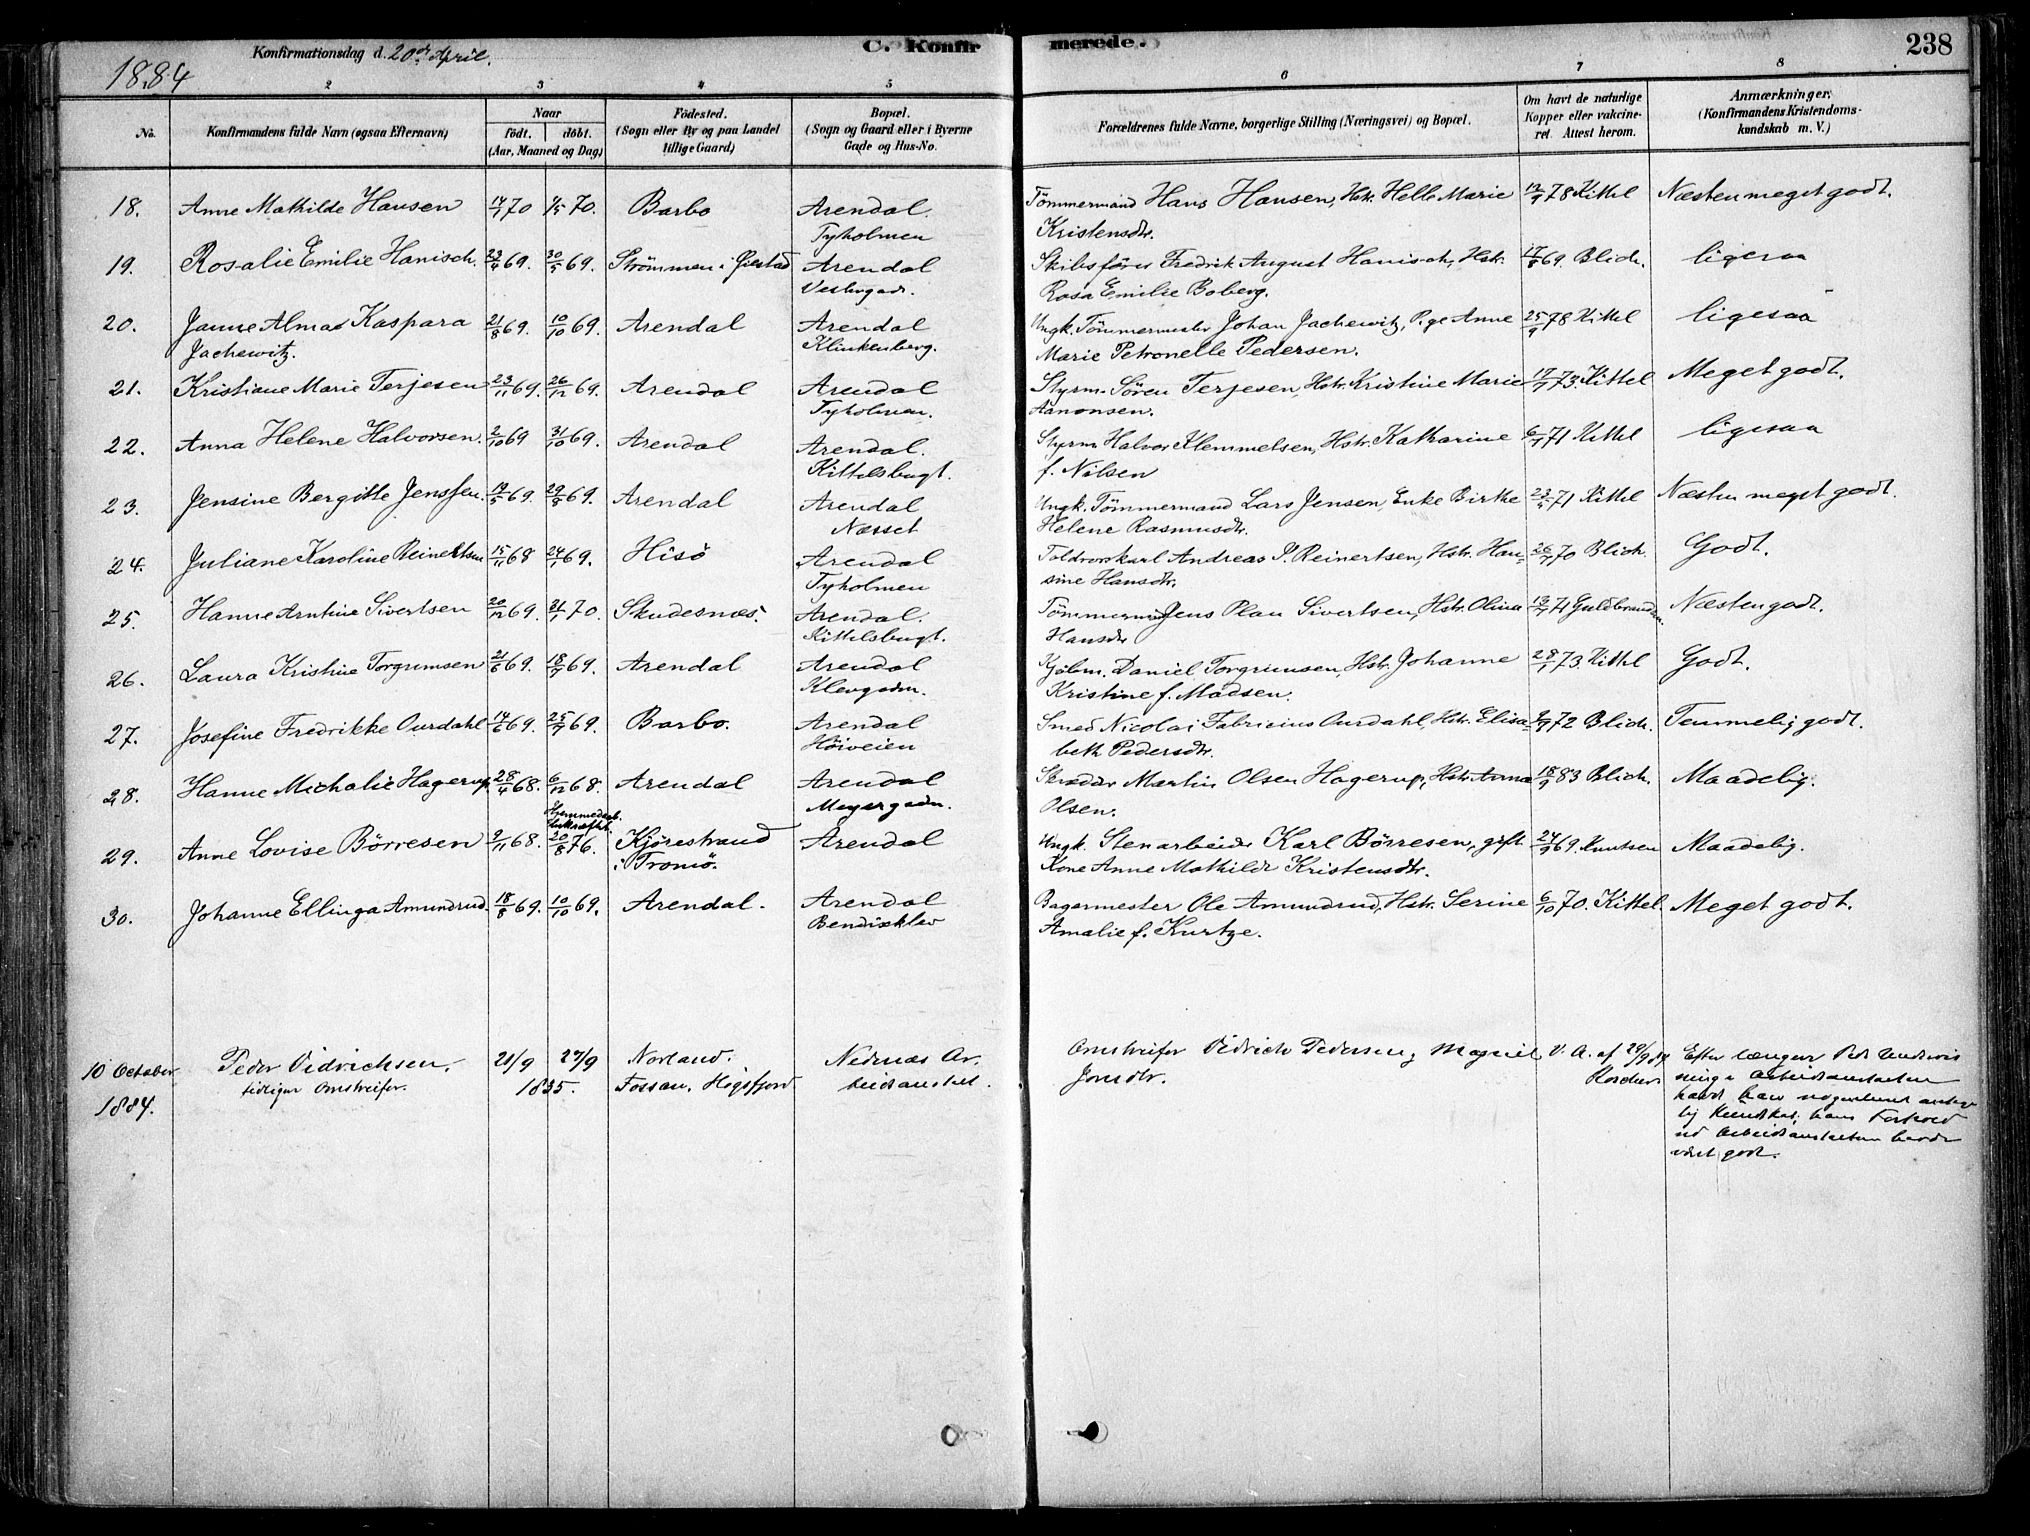 Konfirmationsdag d. 20de April.
1884
C. Konfirmerede.
238
2 3 4 5 6 7 8
No. Konfirmandens fulde Navn (ogsaa Efternavn) Naar født. døbt. (Aar, Maaned og Dag) Födested. (Sogn eller By og paa Landet tillige Gaard) Bopæl. (Sogn og Gaard eller i Byerne Gade og Hus-No. Forældrenes fulde Navne, borgerlige Stilling (Næringsvei) og Bopæl. Om havt de naturlige Kopper eller vakcineret. Attest herom. Anmærkninger. (Konfirmandens Kristendomskundskab m. V.)
18. Anne Mathilde Hansen 70 70. Barbo Arendal. Tømmermand Hans Hansen, Hstr. Helle Marie 78 Kittel Næsten meget godt.
Tyholmen Kristensdtr.
19. Rosalie Emilie Hanisch. 23/4 69. 30/5 69. Strømmen i Øiestad Arendal Skibsfører Fredrik August Hanisch, Hstr. 69. Blich. ligesaa
Vestergadn. Rosa Emilie Boberg.
20. Janne Alma Kaspara 21/8 69. 10/10 69. Arendal Arendal Ungk. Tømmermester Johan Jachewitz, Pige Anne 25/9 78 Kittel ligesaa
Jachewitz. Klinkenberg. Marie Petronelle Pedersen.
21. Kristiane Marie Terjesen 23/11 69. 26/12 69. Arendal Arendal Styrm. Søren Terjesen, Hstr. Kristine Marie 73. Kittel Meget godt.
Tyholmen. Aanonsen.
22. Anna Helene Halvorsen. 2/10 69 31/10 69. Arendal Arendal. Styrm. Halvor Klemmetsen, Hstr. Katharine 71 Kittel ligesaa
Kittelsbugt. f. Nilsen
23. Jensine Bergitte Jenssen. 19/5 69. 29/8 69. Arendal Arendal Ungk. Tømmermand Lars Jensen, Enke Birthe 71 Kittel Næsten meget godt.
Næsset Helene Rasmusdtr.
24. Juliane Karoline Reinertsen 15/11 68 24/1 69. Hisö Arendal Toldvorkarl Andreas P. Reinertsen, Hstr. Han- 70 Blich. Godt.
Tyholmen sine Hansdtr.
25. Hanne Arntine Sivertsen 20/12 69. 31/1 70. Skudesnæs. Arendal. Tømmermand Jens Plan Sivertsen, Hstr. Olina 71 Guldbrandsen. Næsten godt.
Kittelsbugt. Hansdtr
26. Laura Kristine Torgrimsen 21/6 69. 18/7 69. Arendal Arendal Kjølm. Daniel Torgrimsen, Hstr. Johanne 28/1 73. Kittel Godt.
Klevgadn. Kristine f. Madsen.
27. Josefine Fredrikke Ourdahl 14/6 69. 25/7 69. Barbo. Arendal Smed Nicolai Fabricius Ourdahl, Hstr. Elisa- 72 Blich. Temmelig godt.
Høiveien beth Pedersdtr.
28. Hanne Michalie Hagerup. 28/4 68. 6/12 68. Arendal Arendal Skrædder Martin Olsen Hagerup, Hstr. Anna 18/9 83 Blich. Maadelig.
Meyergadn. Olsen.
Hjemmedøbt.
29. Anne Lovise Börresen 2/11 68. 20/8 76. Kjörestrand Arendal Ungk. Stenarbeider Karl Börresen, gift 24/9 69. Knutsen Maadelig.
i Tromö. Kone Anne Mathilde Kristensdtr.
30. Johanne Ellinga Amundrud. 18/8 69. 10/10 69. Arendal. Arendal Bagermester Ole Amundrud, Hstr. Serine 6/10 70. Kittel. Meget godt.
Bendiksklev Amalie f. Kurtze.
10 October Peder Vidrichsen. 21/9 27/9 Norland. Nedenæs Ar- Omstreifer Vidrich Pedersen, Magniel V. A. af 29/9 84 Efter længere Tids Undervis
1884. tidligere Omstreifer. 1835. Fossan, Högsfjord beidsanstalt. Jonsdtr. ning i Arbeidsanstalten
havde han nogenlunde antage
lig Kundskab, hans Forhold
ved Arbeidsanstalten havde
været godt.